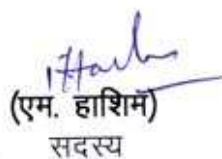 (एम. हाशिम)
सदस्य